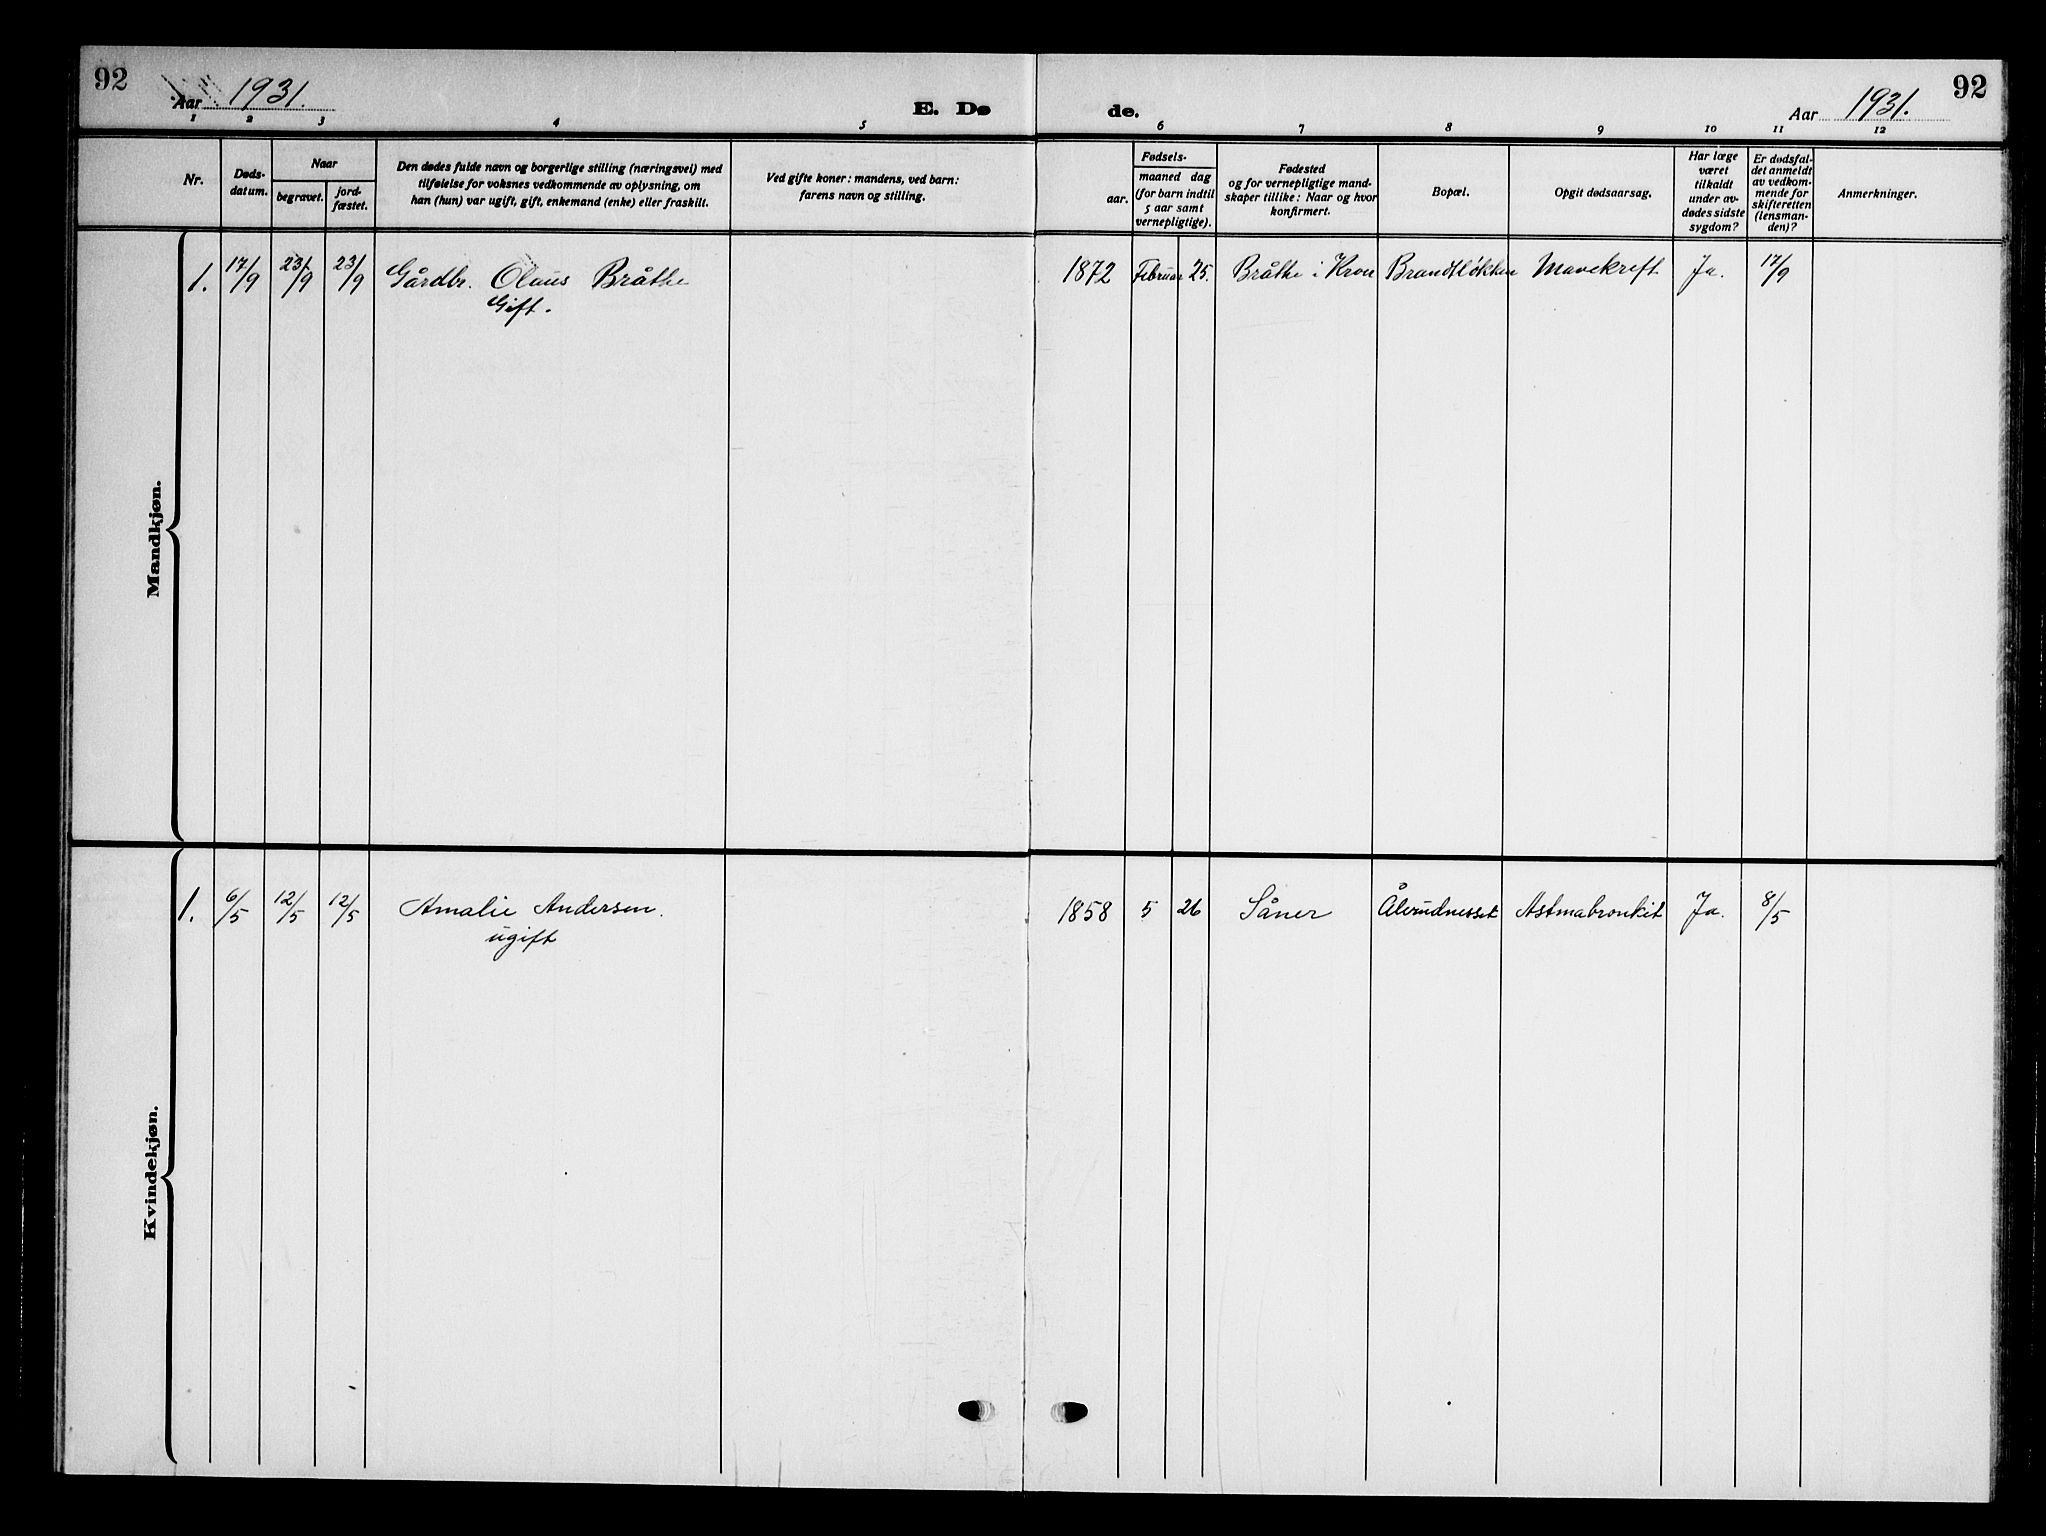 92
Aar 1931.
E. Dø
de.
Aar 1931.
92
1 2 3 4 5 6 7 8 9 10 11 12
Nr.
Døds-
datum.
Naar
begravet.
jord-
fæstet.
Den dødes fulde navn og borgerlige stilling (næringsvei) med
tilføielse for voksnes vedkommende av oplysning, om
han (hun) var ugift, gift, enkemand (enke) eller fraskilt.
Ved gifte koner: mandens, ved barn:
farens navn og stilling.
Fødsels-
aar.
maaned dag
(for barn indtil
5 aar samt
vernepligtige).
Fødested
og for vernepligtige mand-
skaper tillike: Naar og hvor
konfirmert.
Bopæl.
Opgit dødsaarsag.
Har læge
været
tilkaldt
under av-
dødes sidste
sygdom?
Er dødsfal-
det anmeldt
av vedkom-
mende for
skifteretten
(lensman-
den)?
Anmerkninger.
Mandkjøn.
1. 17/9 23/9 23/9 Gårdbr. Olaus Bråthe 1872 Februar 25. Bråthe i Kroer Brandtløkken Mavekreft Ja. 17/9
Gift.
Kvindekjøn.
1. 6/5 12/5 12/5 Amalie Andersen. 1858 5 26 Såner Ålerudnesset Astmabronkit Ja. 8/5
ugift